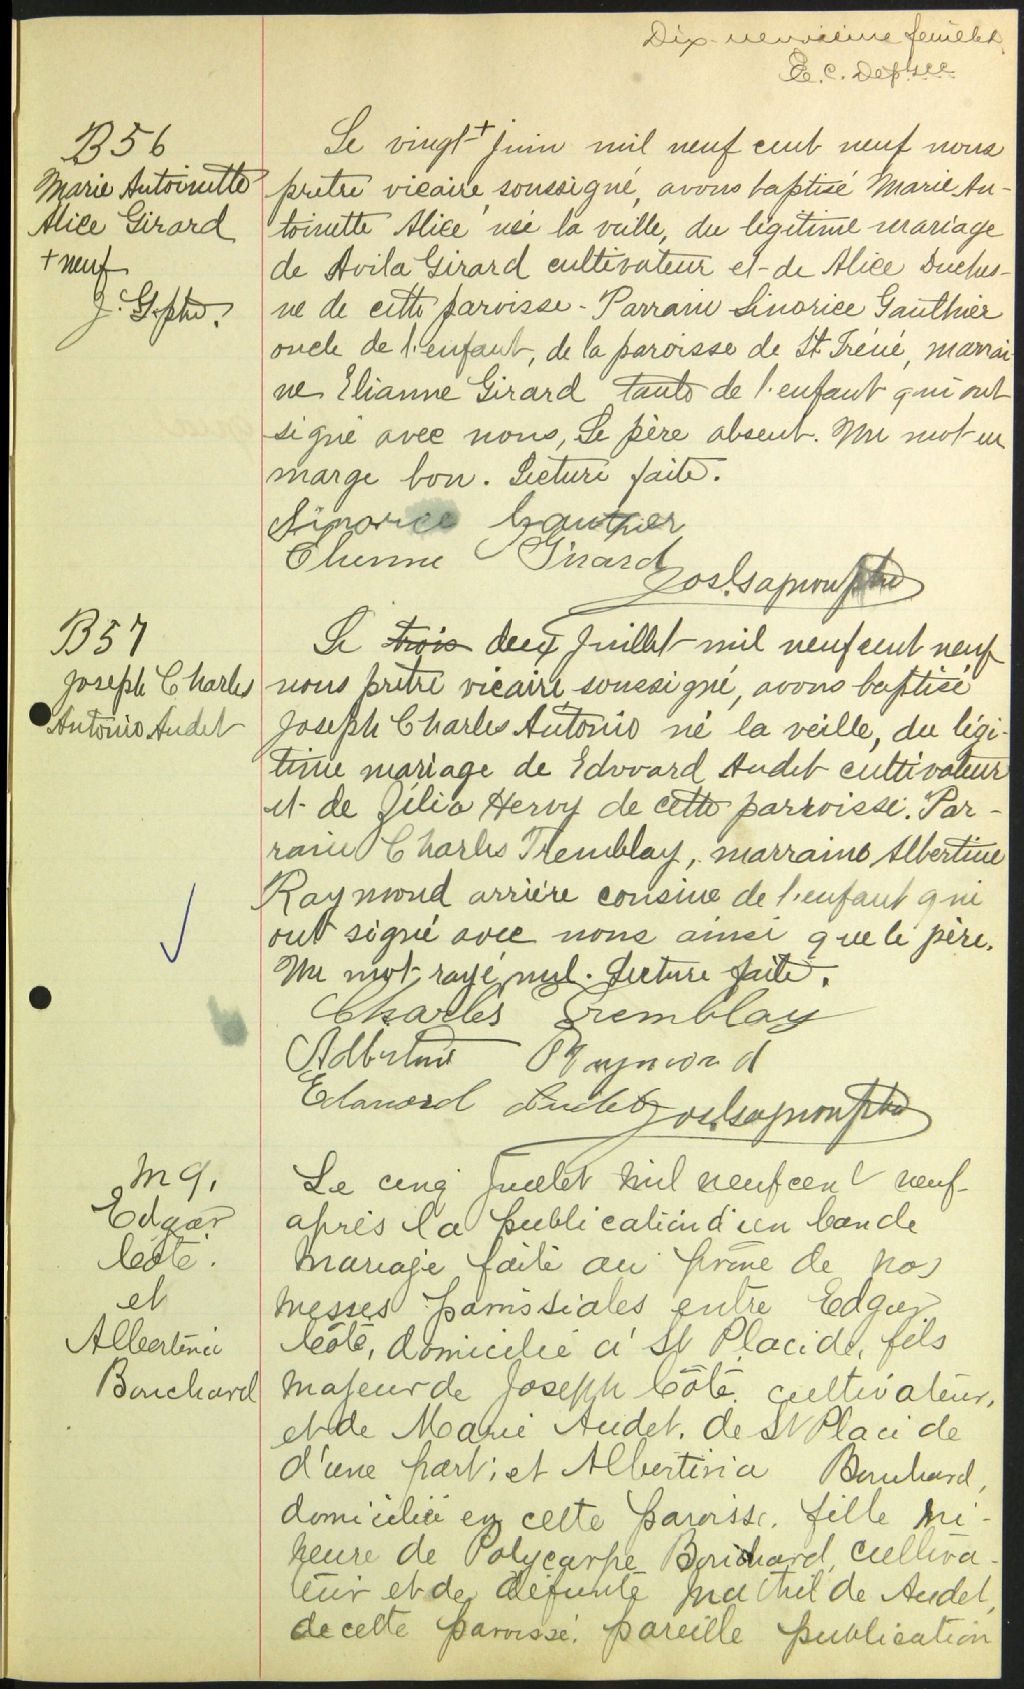 Dix-neuvième feuillet.
E. C. Dep. ...
B56
Marie Antoinette
Alice Girard
+ neuf
J. G. ptre.
Le vingt + juin mil neuf cent neuf nous
prêtre vicaire soussigné, avons baptisé Marie An-
toinette Alice née la veille, du légitime mariage
de Avila Girard cultivateur et de Alice Duches-
ne de cette paroisse - Parrain Linorice Gauthier
oncle de l'enfant, de la paroisse de St Iréné, marrai-
ne Elianne Girard tante de l'enfant qui ont
signé avec nous, Le père absent. Un mot en
marge bon. Lecture faite.
Linorice Gauthier
Elienne Girard
Jos. Gagnon ptre
B57
Joseph Charles
Antonio Audet
Le trois deux Juillet mil neuf cent neuf
nous prêtre vicaire soussigné, avons baptisé
Joseph Charles Antonio né la veille, du légi-
time mariage de Edouard Audet cultivateur
et de Jélia Hervy de cette parroisse. Par-
rain Charles Tremblay, marraine Albertine
Raymond arrière cousine de l'enfant qui
ont signé avec nous ainsi que le père.
Un mot rayé nul. Lecture faite.
Charles Tremblay
Adbertine Raymond
Edouard Audet Jos. Gagnon ptre
M 9.
Edgar
Côté.
et
Albertina
Bouchard
Le cinq Juillet mil neuf cent neuf
après la publication d'un ban de
mariage faite au prône de nos
messes paroissiales entre Edgar
Côté, domicilié à St Placide, fils
majeur de Joseph Côté cultivateur,
et de Marie Audet. de St Placide
d'une part; et Albertina Bouchard,
domiciliée en cette paroisse. fille mi-
neure de Polycarpe Bouchard, cultiva-
teur et de défunte Mathilde Audet,
de cette paroisse. pareille publication